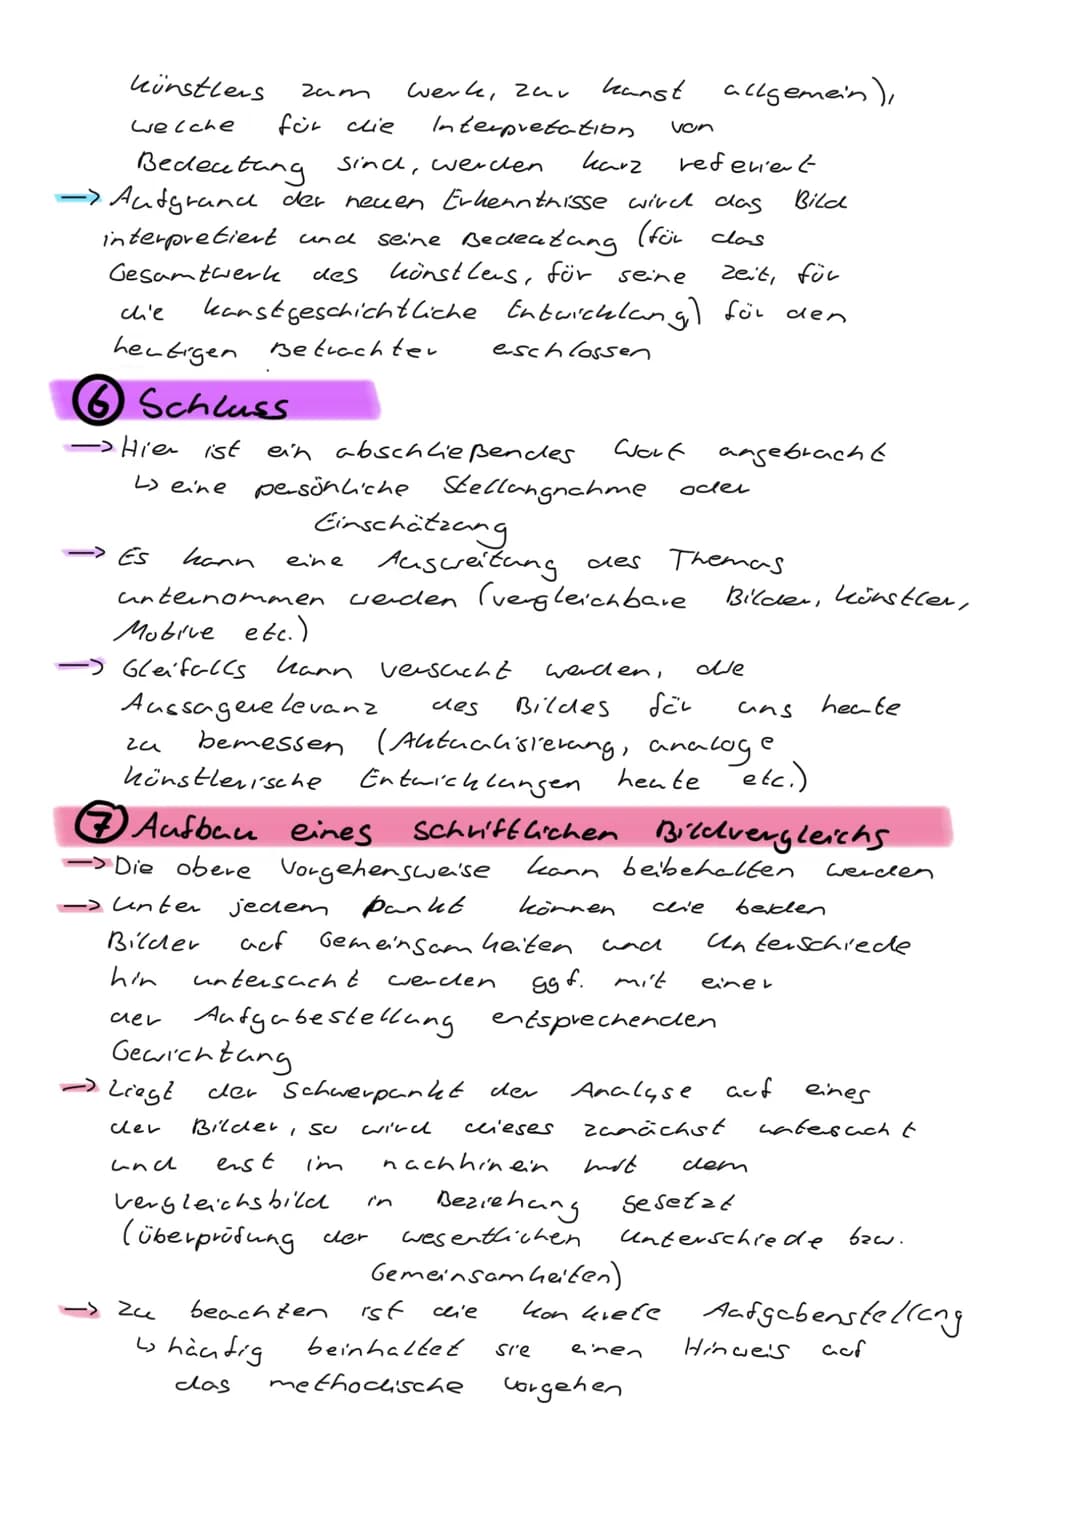 Künstlers zum Werk, zur Kunst allgemein),
welche für die Interpretation von
Bedeutung sind, werden kurz referiert
→ Aufgrund der neuen Erkenntnisse wird das Bild
interpretiert und seine Bedeutung (für das
Gesamtwerk des Künstlers, für seine Zeit, für
die kunstgeschichtliche Entwicklung) für den
heutigen Betrachter erschlossen
⑥ Schluss
→ Hier ist ein abschließendes Wort angebracht
↳ eine persönliche Stellungnahme oder
Einschätzung
→ Es kann eine Ausweitung des Themas
unternommen werden (vergleichbare Bilder, Künstler,
Motive etc.)
→ Gleifalls kann versucht werden, die
Aussagerelevanz des Bildes für uns heute
zu bemessen (Aktualisierung, analoge
künstlerische Entwicklungen heute etc.)
⑦ Aufbau eines schriftlichen Bildvergleichs
→ Die obere Vorgehensweise kann beibehalten werden
→ Unter jedem Punkt können die beiden
Bilder auf Gemeinsamkeiten und Unterschiede
hin untersucht werden ggf. mit einer
der Aufgabestellung entsprechenden
Gewichtung
→ Liegt der Schwerpunkt der Analyse auf eines
der Bilder, so wird dieses zunächst untersucht
und erst im nachhinein mit dem
Vergleichsbild in Beziehung gesetzt
(Überprüfung der wesentlichen Unterschiede bzw.
Gemeinsamkeiten)
→ Zu beachten ist die konkrete Aufgabenstellung
↳ häufig beinhaltet sie einen Hinweis auf
das methodische Vorgehen